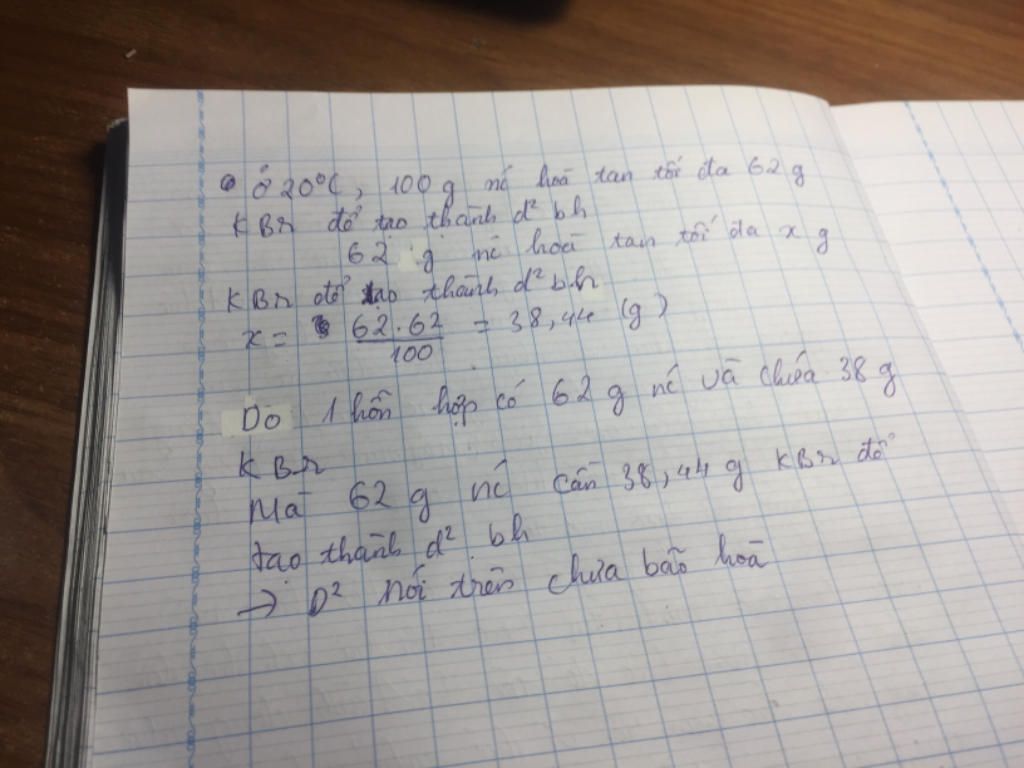 Ở 20°C, 100 g nc hoà tan tối đa 62 g
KBr để tạo thành d² bh
62 g nc hoà tan tối đa x g
KBr để tạo thành d² bh
x = 62.62 / 100 = 38,44 (g)
Do 1 hỗn hợp có 62 g nc và chứa 38 g
KBr
Mà 62 g nc cần 38,44 g KBr để
tạo thành d² bh
→ D² nói trên chưa bão hoà